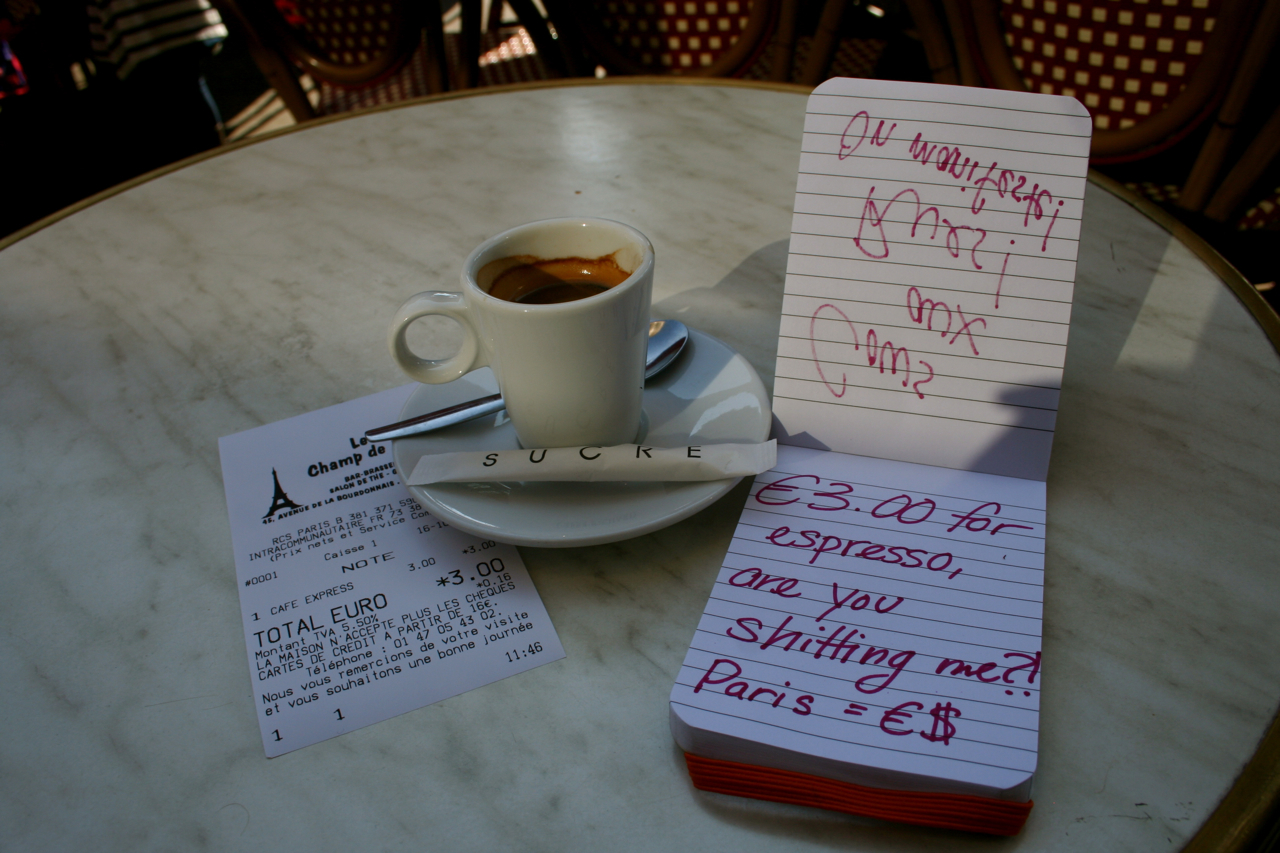 Le
Champ de
BAR-BRASSE
SALON DE THE - G
45, AVENUE DE LA BOURDONNAIS -
RCS PARIS B 381 371 59
INTRACOMMUNAUTAIRE FR 73 38
(Prix nets et Service Com
Caisse 1 16-10
#0001 NOTE *3.00
1 CAFE EXPRESS 3.00
TOTAL EURO *3.00
Montant TVA 5.50% *0.16
LA MAISON N'ACCEPTE PLUS LES CHEQUES
CARTES DE CREDIT A PARTIR DE 16€.
Téléphone : 01 47 05 43 02.
Nous vous remercions de votre visite
et vous souhaitons une bonne journée
1 11:46
1
SUCRE
€3.00 for
espresso,
are you
shitting me?!
Paris = €$